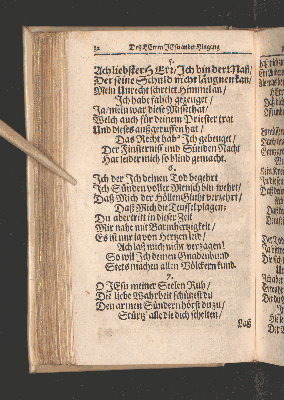 32 Deß HErrn JEsu ander Hingang
5.
Ach liebster HErr/ Ich bin der Mañ/
Der seine Schuld nicht läugnen kan/
Mein Unrecht schreiet Himmel an/
Ich habe falsch gezeuget/
Ja/ mein war diese Missethat/
Welch auch für deinem Priester trat
Und dieses außgeruffen hat/
Das Recht hab' Ich gebeuget/
Der Finsternuß und Sünden Macht
Hat leider mich so blind gemacht.
6.
Ich der Ich deinen Tod begehrt
Ich Sünden voller Mensch bin wehrt/
Daß Mich der Höllen Gluht verzehrt/
Daß Mich die Teuffel plagen:
Du aber tritt in dieser Zeit
Mir nahe mit Barmhertzigkeit/
Es ist mir ja von Hertzen leid/
Ach laß mich nicht verzagen!
So wil Ich deinen Gnadenbund
Stets machen allen Völckern kund.
7.
O JEsu meiner Seelen Ruh/
Die liebe Wahrheit schützest du
Den armen Sündern hörst du zu/
Stürtz' alle die dich schelten/
Laß